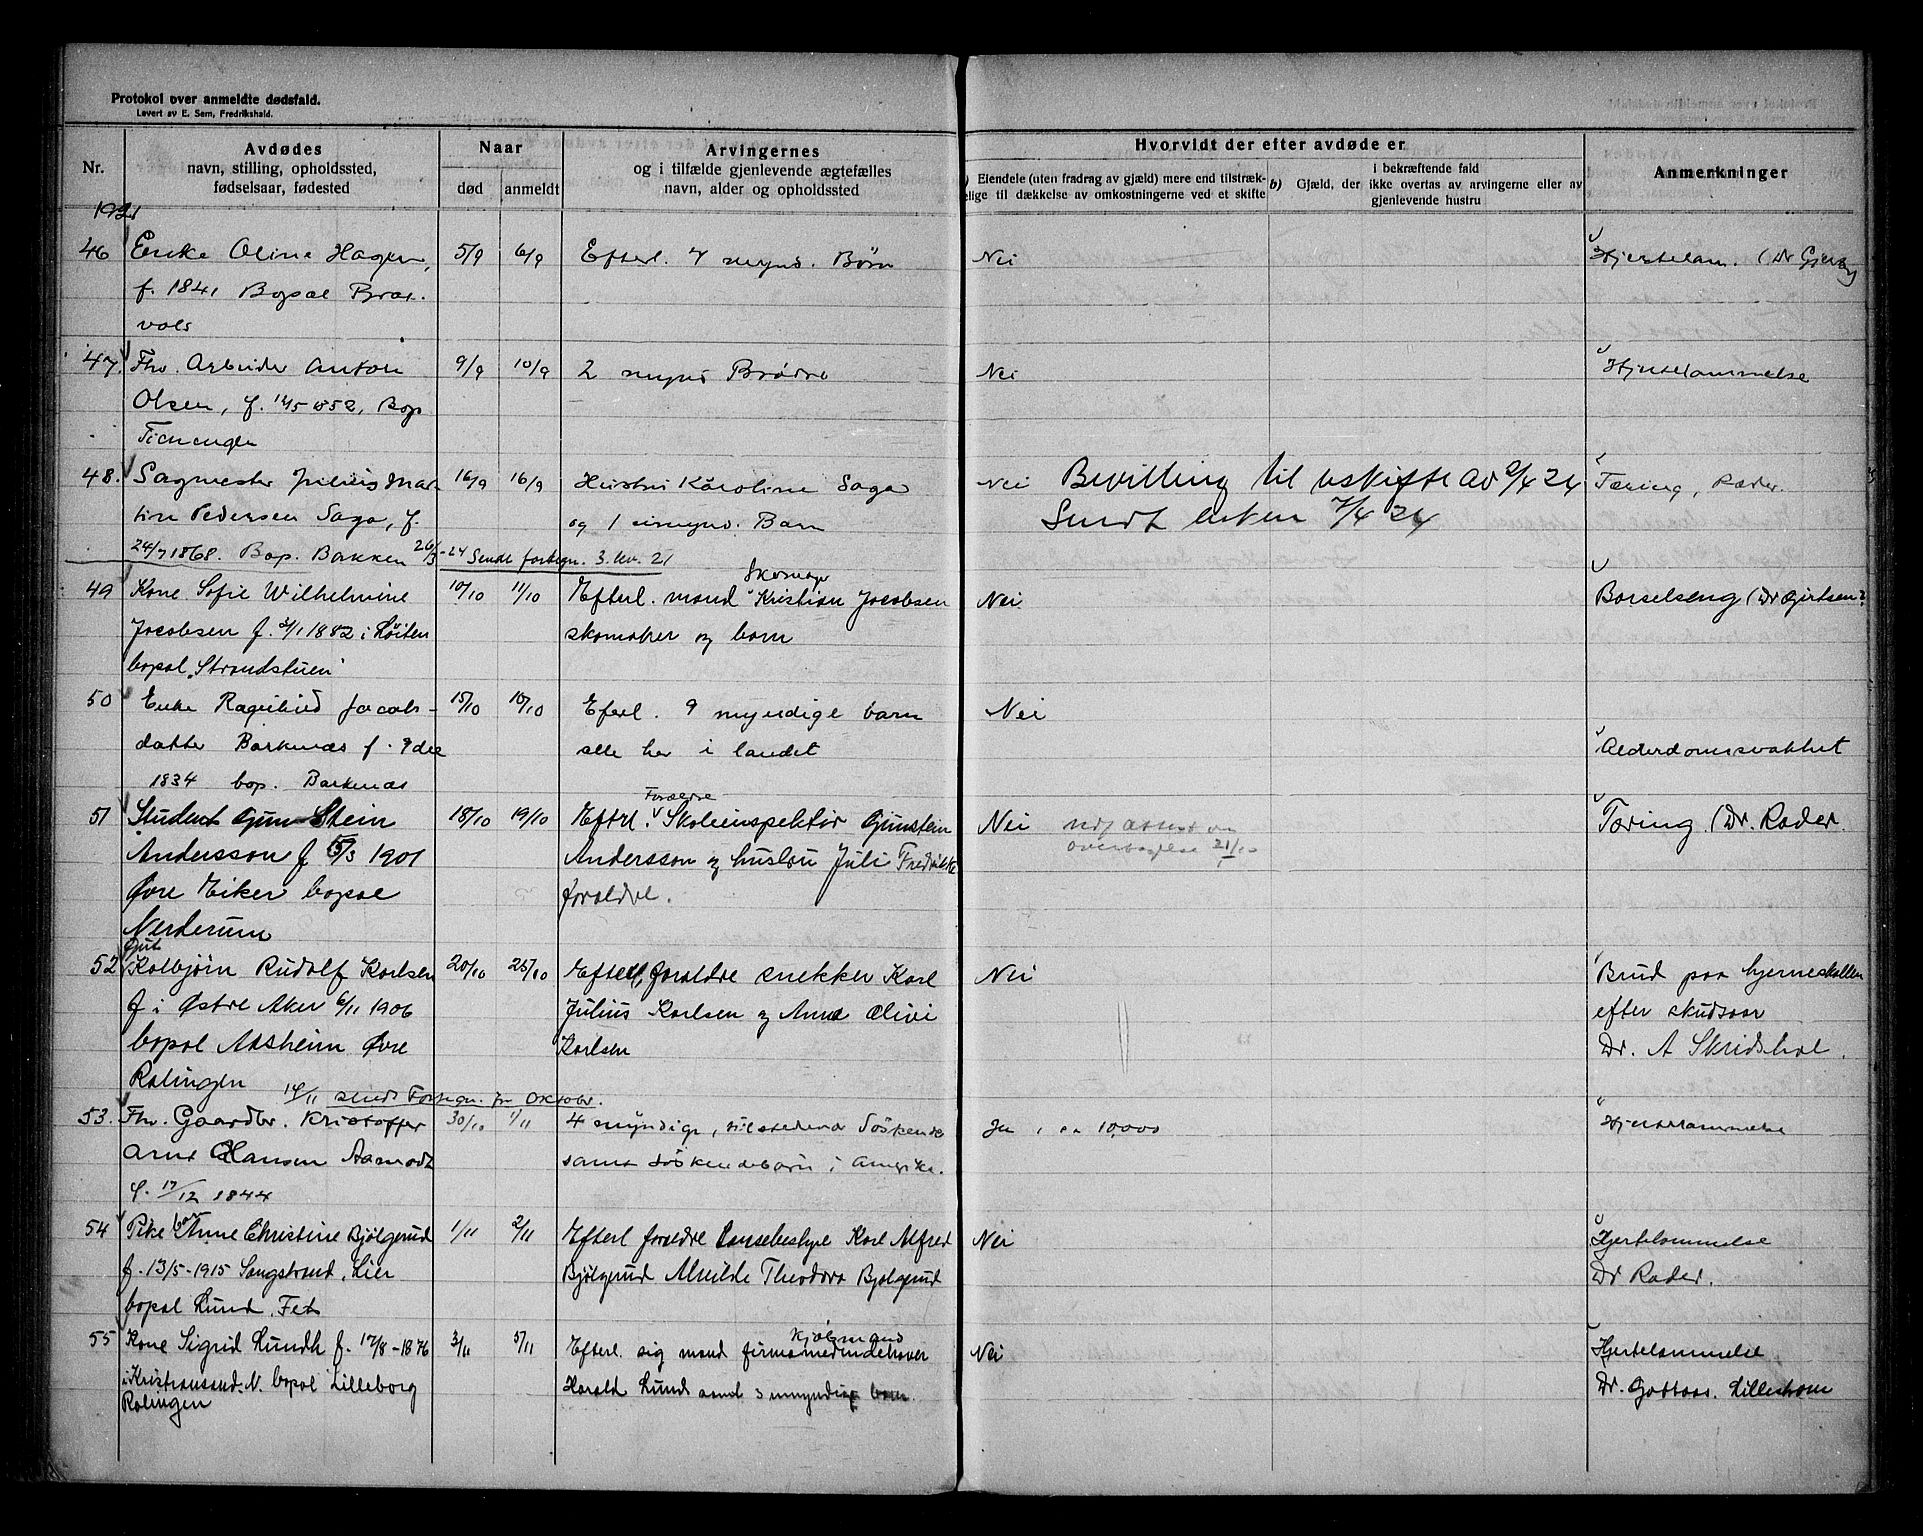 Protokol over anmeldte dødsfald.
Levert av E. Sem, Fredrikshald.
Nr.
Avdødes
navn, stilling, opholdssted,
fødselsaar, fødested
Naar
død
anmeldt
Arvingernes
og i tilfælde gjenlevende ægtefælles
navn, alder og opholdssted
Hvorvidt der efter avdøde er
Eiendele (uten fradrag av gjæld) mere end tilstræk-
elige til dækkelse av omkostningerne ved et skifte
b) Gjæld, der
i bekræftende fald
ikke overtas av arvingerne eller av
gjenlevende hustru
Anmerkninger
1921
46 Enke Oline Hagen, 5/9 6/9 Efterl. 7 mynd. Børn Nei Hjertelam. (Dr
f. 1841 Bopæl
47. Fhv. Arbeider Anton 9/9 10/9 2 mynd Brødre Nei Hjertelammelse
Olsen, f. 1852, Bop
48. Sagmester Julius Mar- 16/9 16/9 Hustru Karoline Saga Nei Bevilling til uskifte av 2/4 24 Tæring, Ræder.
tin Pedersen Saga, f. og 1 Barn Sendt 7/4 24
24/7 1868. Bop. Bakken 26/3-24 Sendt fortegn. 3. 21
49 Kone Sofie Wilhelmine 10/10 11/10 Efterl. mand Kristian Jacobsen Nei Barselseng (Dr
Jacobsen f. 1882 i Høiten skomaker og barn
bopæl "Strandstuen"
50 Enke Ragnhild Jacobs- 15/10 18/10 Efterl. 9 myndige barn Nei
datter Barkenæs f. 9 dec alle her i landet Alderdomssvakhet
1834 bop. Barkenæs
Forældre
51 Student Gunstein 18/10 19/10 Efterl. Skoleinspektør Gunstein Nei Tæring. (Dr. Rader.
Andersson f 5/3 1901 Andersson og hustru Juli Fredrikke 21/10
Øvre Eiker bopæl foraldre.
Nerderum
Gut
52 Kolbjørn Rudolf Karlsen 20/10 25/10 Efterl, foraldre snekker Karl Nei Brud paa hjerneskallen
f i Østre Aker 6/11 1906 Julius Karlsen og Anna Olivi efter skudsaar
bopæl Aasheim Øvre Karlsen Dr. A Skridshol.
Ralingen 14/11 sendt Fortegn. for Oktober.
53. Fhv. Gaardbr. Kristoffer 30/10 1/11 4 myndige, Søskende Ja, ca 10,000 Hjertelammelse
Arne Hansen Aamodt samt Søskendebarn i Amerika.
f. 17/12 1844
54 Pike Anne Christine Bjølgerud 1/11 2/11 Efterl foraldre Karl Alfred Nei Hjertelammelse
f. 13/5-1915 Sangstrand, Lier Bjølgerud Alvilde Theodora Bjølgerud Dr Rader.
bopæl Lund, Fet
kjøbmand
55 Kone Sigrid Lundh f. 17/8-1876 3/11 5/11 Efterl. sig mand firmamedindehaver Nei Hjertelammelse
i Kristiansand. N. bopæl Lilleborg Harald Lund samt 3 umyndige barn. Dr. Gottaas. Lillestrøm
Ralingen